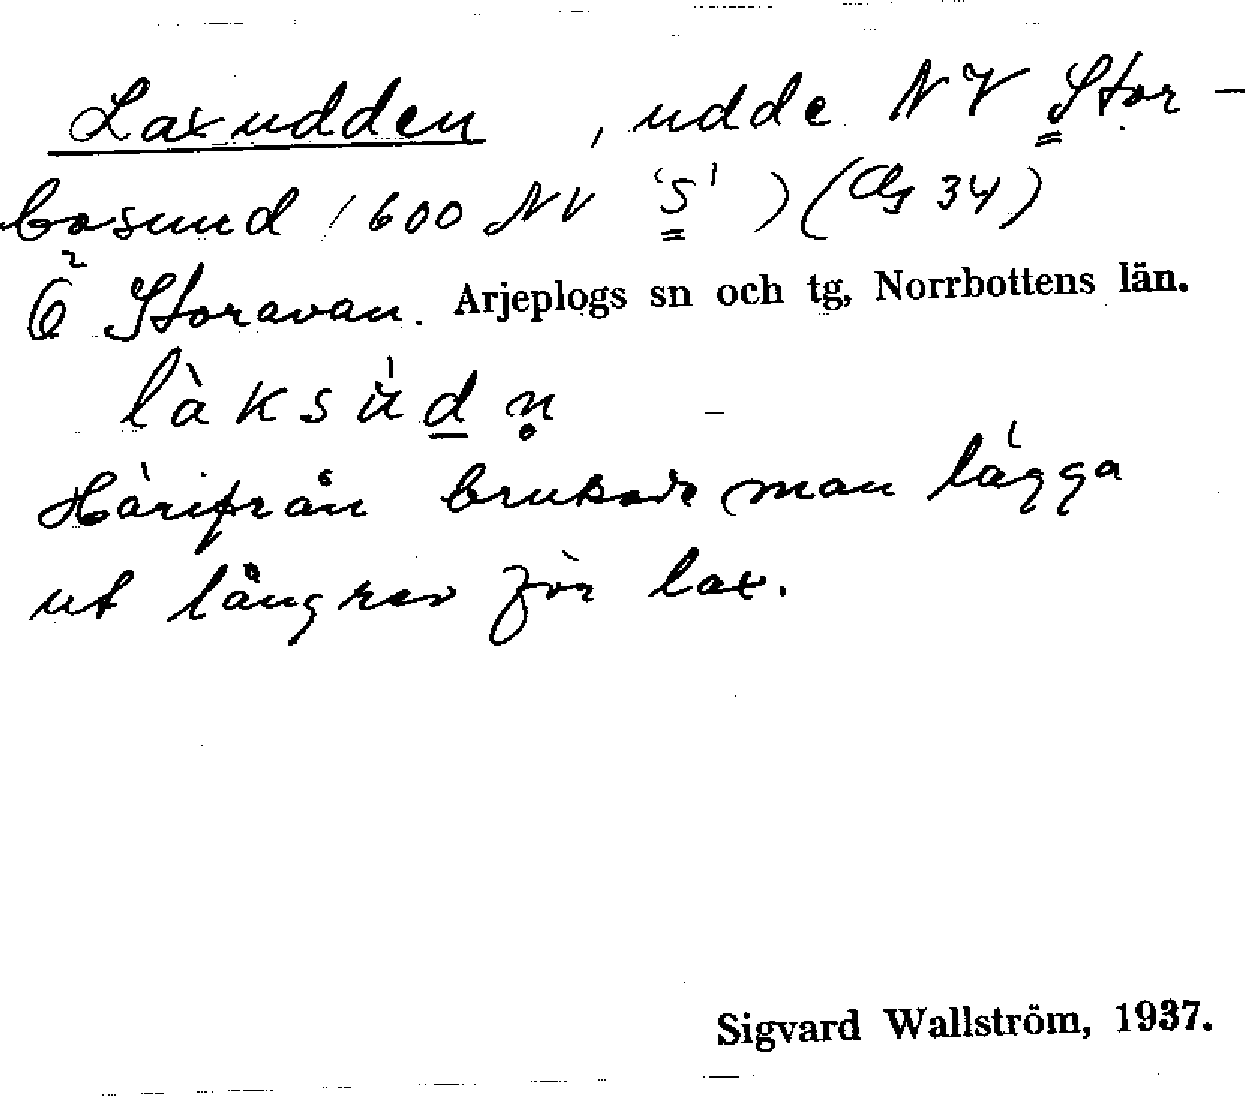 Laxudden, udde NV Stor-
bosund (600 NV 'S') (34)
Storavan. Arjeplogs sn och tg, Norrbottens län.
làksúdn̥
Härifrån brukade man lägga
ut långrev för lax.
Sigvard Wallström, 1937.